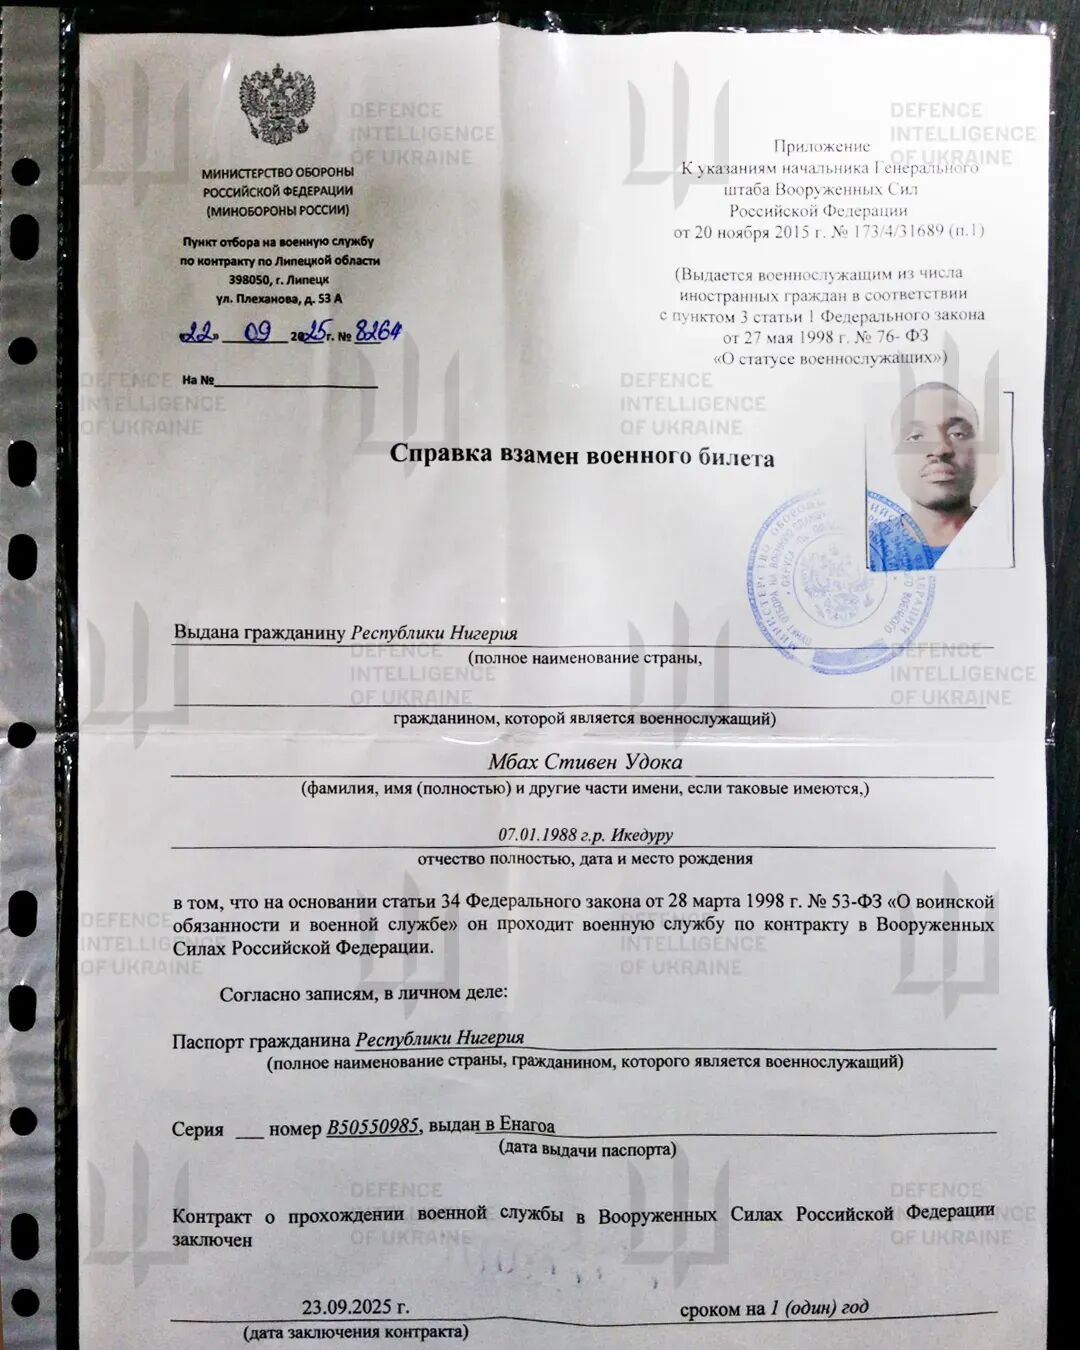 МИНИСТЕРСТВО ОБОРОНЫ
РОССИЙСКОЙ ФЕДЕРАЦИИ
(МИНОБОРОНЫ РОССИИ)
Пункт отбора на военную службу
по контракту по Липецкой области
398050, г. Липецк
ул. Плеханова, д. 53 А
«22» 09 2025г. № 8264
На №
Приложение
К указаниям начальника Генерального
штаба Вооруженных Сил
Российской Федерации
от 20 ноября 2015 г. № 173/4/31689 (п.1)
(Выдается военнослужащим из числа
иностранных граждан в соответствии
с пунктом 3 статьи 1 Федерального закона
от 27 мая 1998 г. № 76- ФЗ
«О статусе военнослужащих»)
Справка взамен военного билета
Выдана гражданину Республики Нигерия
(полное наименование страны,
гражданином, которой является военнослужащий)
Мбах Стивен Удока
(фамилия, имя (полностью) и другие части имени, если таковые имеются,)
07.01.1988 г.р. Икедуру
отчество полностью, дата и место рождения
в том, что на основании статьи 34 Федерального закона от 28 марта 1998 г. № 53-ФЗ «О воинской
обязанности и военной службе» он проходит военную службу по контракту в Вооруженных
Силах Российской Федерации.
Согласно записям, в личном деле:
Паспорт гражданина Республики Нигерия
(полное наименование страны, гражданином, которого является военнослужащий)
Серия ___ номер B50550985, выдан в Енагоа
(дата выдачи паспорта)
Контракт о прохождении военной службы в Вооруженных Силах Российской Федерации
заключен
23.09.2025 г. сроком на 1 (один) год
(дата заключения контракта)
DEFENCE
INTELLIGENCE
OF UKRAINE
DEFENCE
INTELLIGENCE
OF UKRAINE
DEFENCE
INTELLIGENCE
OF UKRAINE
DEFENCE
INTELLIGENCE
OF UKRAINE
DEFENCE
INTELLIGENCE
OF UKRAINE
DEFENCE
INTELLIGENCE
OF UKRAINE
DEFENCE
INTELLIGENCE
OF UKRAINE
DEFENCE
INTELLIGENCE
OF UKRAINE
DEFENCE
INTELLIGENCE
OF UKRAINE
DEFENCE
INTELLIGENCE
OF UKRAINE